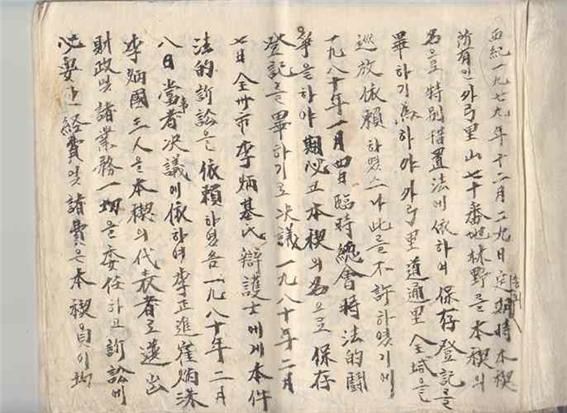 西紀一九七九年十二月二九日 定期總會時 本楔
所有인 外弓里山七十番地林野를 本楔의
名으로 特別措置法에 依하여 保存登記를
畢하기 爲하야 外弓里 道通里 全域을
巡放依賴하였으나 此를 不許하였기에
一九八十年一月四日 臨時總會時 法的鬪
爭을 하야 期必코 本楔의 名으로 保存
登記를 畢하기로 決議 一九八十年二月
七日 全州市 李炳基氏 辯護士에게 本件
法的訴訟을 依賴하였음 一九八十年二月
八日 當事者 決議에 依하여 李正進 崔炳洙
李炳國 三人을 本楔의 代表者로 選出
財政및 諸業務一切을 委任하고 訴訟에
必要한 經費및 諸費은 本楔